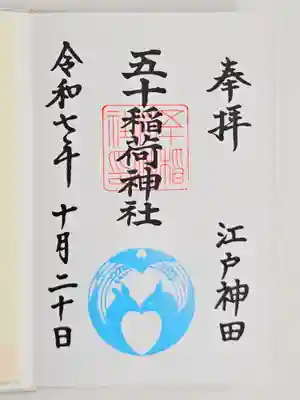 奉拝
江戸神田
五十稲荷神社
令和七年 十月二十日